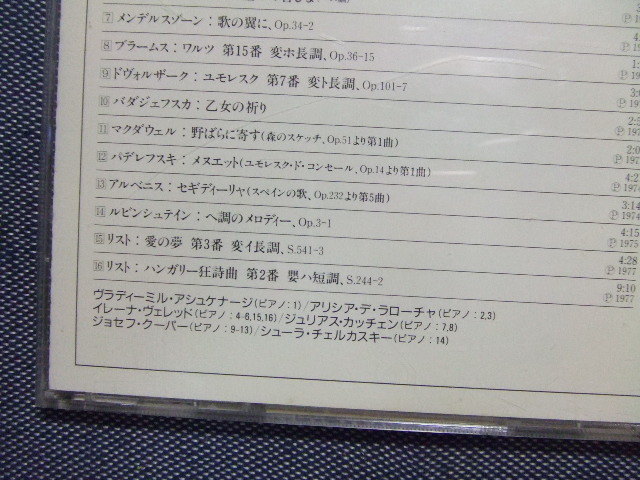 ⑦ メンデルスゾーン：歌の翼に、Op.34-2
Ⓟ
⑧ ブラームス：ワルツ 第15番 変ホ長調、Op.36-15
⑨ ドヴォルザーク：ユモレスク 第7番 変ト長調、Op.101-7
⑩ バダジェフスカ：乙女の祈り
⑪ マクダウェル：野ばらに寄す(森のスケッチ、Op.51より第1曲)
⑫ パデレフスキ：メヌエット(ユモレスク・ド・コンセール、Op.14より第1曲)
⑬ アルベニス：セギディーリャ(スペインの歌、Op.232より第5曲)
3:14
Ⓟ 1974
⑭ ルビンシュテイン：ヘ調のメロディー、Op.3-1
4:15
Ⓟ 1975
⑮ リスト：愛の夢 第3番 変イ長調、S.541-3
4:28
Ⓟ 1977
⑯ リスト：ハンガリー狂詩曲 第2番 嬰ハ短調、S.244-2
9:10
Ⓟ 1977
ヴラディーミル・アシュケナージ(ピアノ：1)/アリシア・デ・ラローチャ(ピアノ：2,3)
イレーナ・ヴェレッド(ピアノ：4-6,15,16)/ジュリアス・カッチェン(ピアノ：7,8)
ジョセフ・クーパー(ピアノ：9-13)/シューラ・チェルカスキー(ピアノ：14)